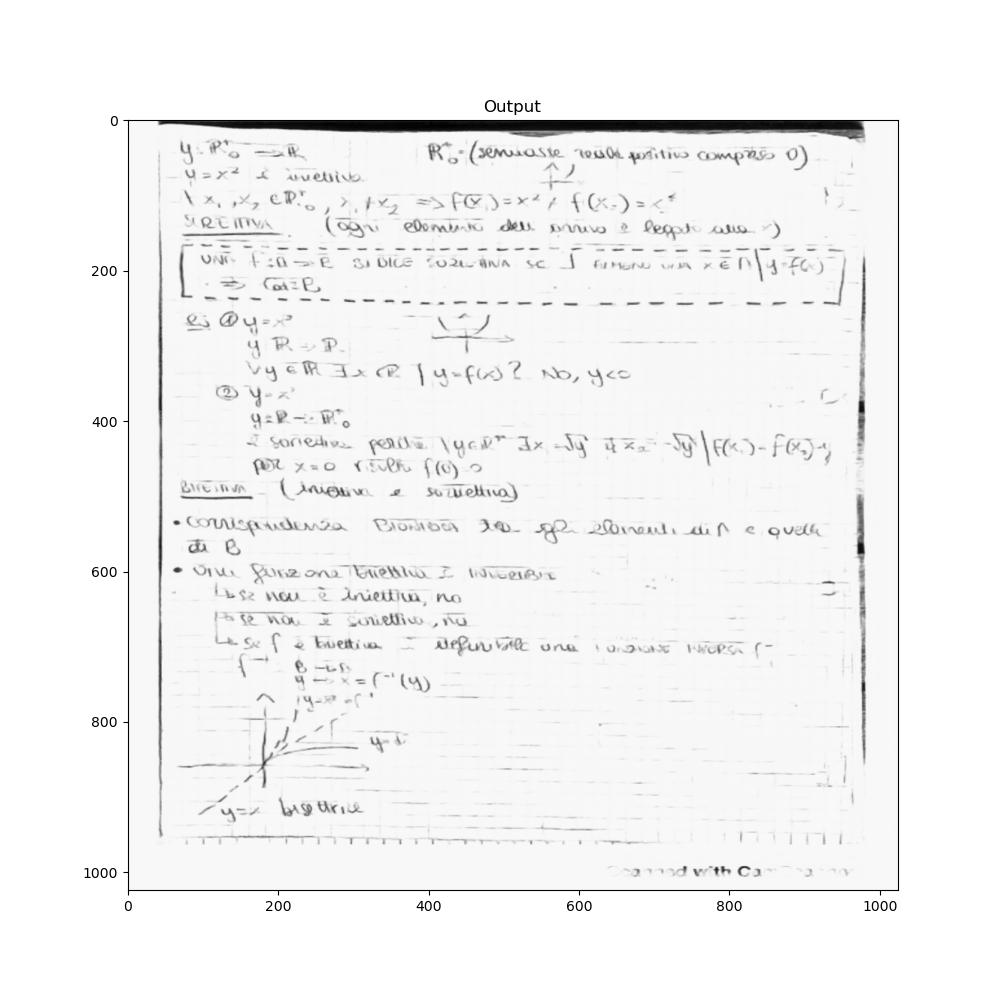 Output
y: R⁺₀ → R R⁺₀ = (semiasse reale positivo compreso 0)
y = x² è iniettiva
x₁, x₂ ∈ R⁺₀, x₁ ≠ x₂ ⇒ f(x₁) = x² ≠ f(x₂) = x²
(ogni elemento dell' arrivo è legato alla x)
UNA f: A → B SI DICE SURIETTIVA SE ∃ ALMENO UNA x ∈ A | y = f(x)
⇒
Es ① y = x²
y R → R
∀y ∈ R ∃x ∈ R | y = f(x)? No, y<0
② y = x²
y = R → R⁺₀
è suriettiva perché ∃x₁ = √y | f(x₁) = f(x₂) = y
per x = 0 risulta f(0) = 0
BIIETTIVA (iniettiva e suriettiva)
• corrispondenza BIUNIVOCA tra gli elementi di A e quelli
di B
• una funzione biiettiva È INVERTIBILE
↳ se non è iniettiva, no
↳ se non è suriettiva, no
↳ se f è biiettiva è definibile una FUNZIONE INVERSA f⁻¹
f⁻¹ B → A
y → x = f⁻¹(y)
y = x bisettrice
0
200
400
600
800
1000
0 200 400 600 800 1000